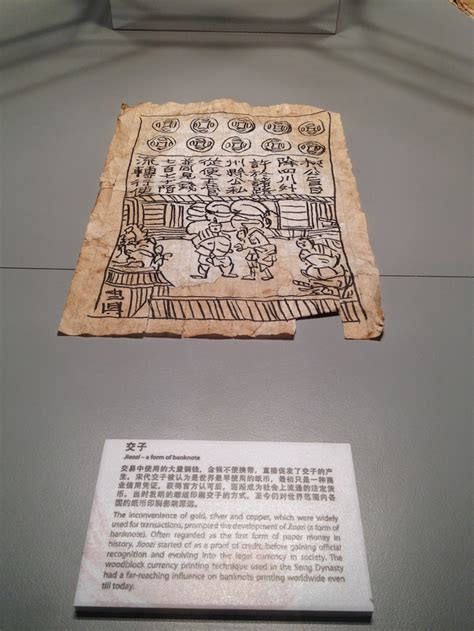 除四川外
許於諸路
州縣公私
從便主管
並同見錢
七百七十陌
流轉行使
交子
Jiaozi – a form of banknote
交易中使用的大量铜钱、金银不便携带，直接促发了交子的产
生。宋代交子被认为是世界最早使用的纸币，最初只是一种商
业信用凭证，获得官方认可后，逐渐成为社会上流通的法定货
币。当时发明的雕版印刷交子的方式，至今仍对世界范围内各
国的纸币印刷影响深远。
The inconvenience of gold, silver and copper, which were widely
used for transactions, prompted the development of Jiaozi (a form of
banknote). Often regarded as the first form of paper money in
history, Jiaozi started of as a proof of credit, before gaining official
recognition and evolving into the legal currency in society. The
woodblock currency printing technique used in the Song Dynasty
had a far-reaching influence on banknote printing worldwide even
till today.